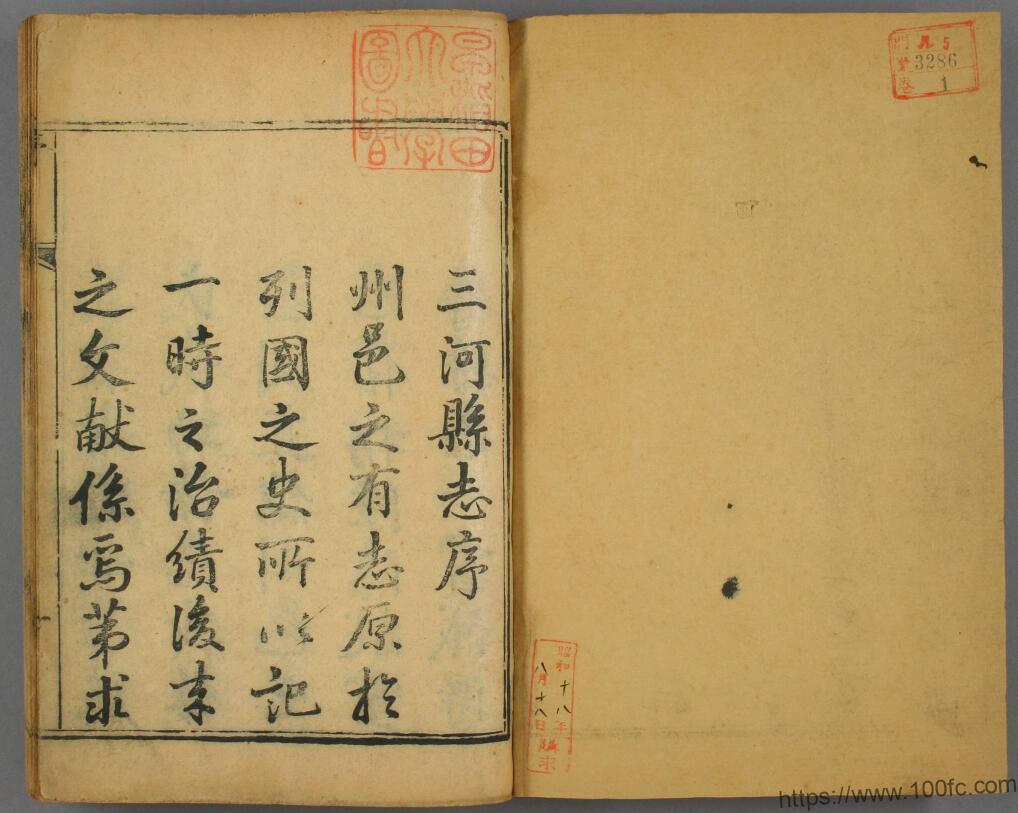 門 ル5
號 3286
卷 1
昭和十八年
八月十八日
購求
早稲田
大學
圖書
三河縣志序
州邑之有志原於
列國之史所以記
一時之治績後来
之文献係焉第求
https://www.100fc.com